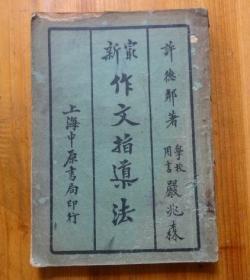 許德鄰著
學校
用書
嚴兆森
最新
作文指導法
上海中原書局印行